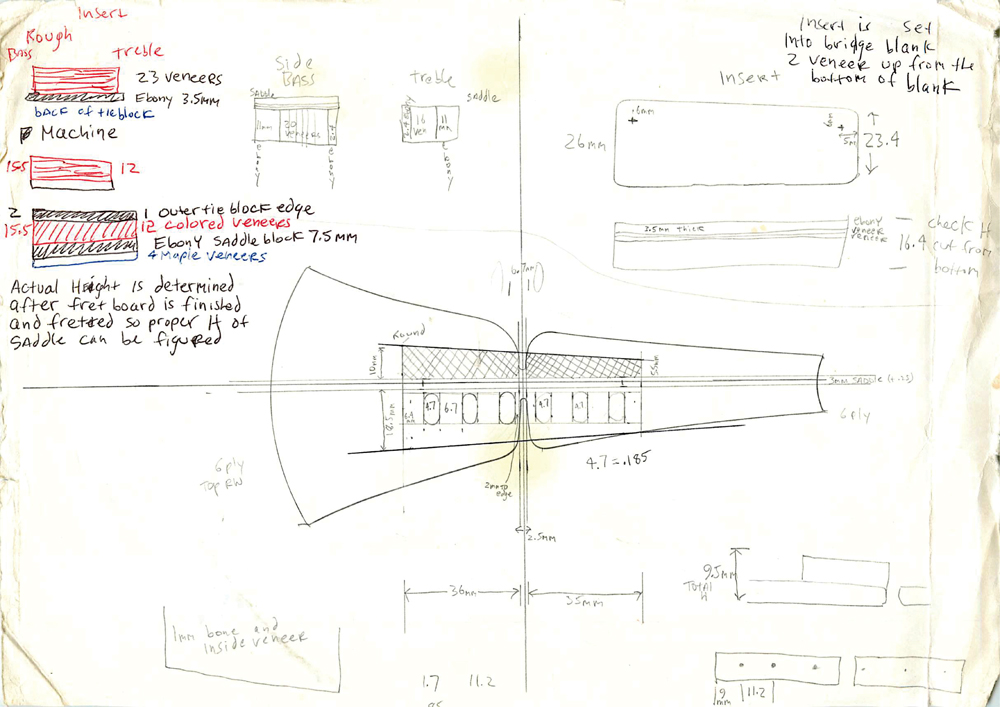 Insert
Rough
Bass
treble
23 veneers
Ebony 3.5mm
back of tie block
Machine
15.5
12
2
1 outer tie block edge
15.5
12 colored veneers
Ebony Saddle block 7.5 mm
4 Maple veneers
Actual Height is determined
after fret board is finished
and fretted so proper H of
Saddle can be figured
Side
BASS
Saddle
11mm
30
veneers
3.4
ebony
ebony
treble
saddle
16
ven
11
mm
ebony
Insert is set
Into bridge blank
2 veneer up from the
bottom of blank
Insert
26mm
6mm
6mm
5m
23.4
3.5mm thick
ebony
veneer
veneer
check H
16.4 cut from
bottom
Round
10mm
5.5mm
3mm SADDLE (+.25)
18.5mm
4.7
6.7
4.7
4.7
6 ply
4.7=.185
6 ply
Top RW
2mm to
edge
2.5mm
36mm
35mm
9.5mm
TOTAL
H
1mm bone and
Inside veneer
1.7
11.2
9
mm
11.2